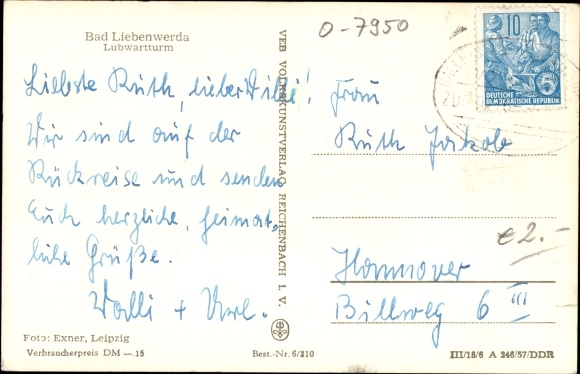 Bad Liebenwerda
Lubwartturm
Liebste Ruth, lieber Willi!
Wir sind auf der
Rückreise und senden
Euch herzliche, heimat-
liche Grüße.
Walli + Karl.
Foto: Exner, Leipzig
Verbraucherpreis DM —.15
VEB VOLKSKUNSTVERLAG REICHENBACH I. V.
Best.-Nr. 6/210
O-7950
10
DEUTSCHE
DEMOKRATISCHE REPUBLIK
Frau
Ruth Jakob
€2.-
Hannover
Billweg 6 III
III/18/6 A 246/57/DDR